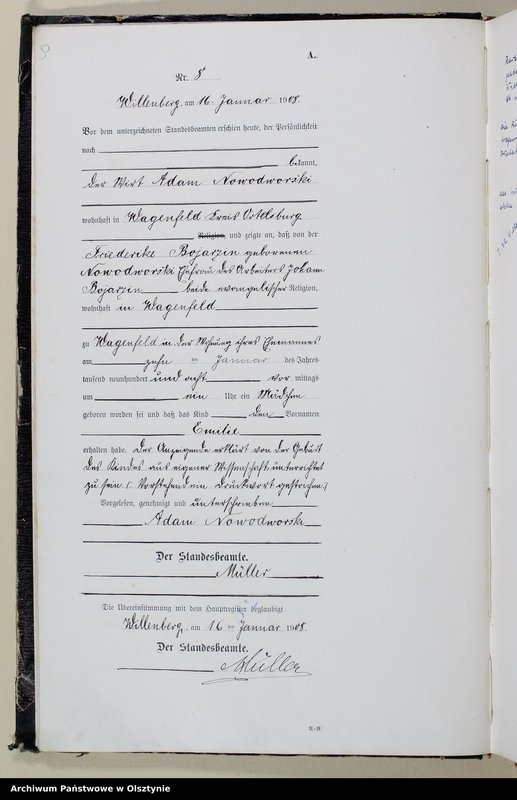 A.
Nr. 8
Willenberg, am 16. Januar 1908.
Vor dem unterzeichneten Standesbeamten erschien heute, der Persönlichkeit
nach
bekannt,
der Wirt Adam Nowodworski
wohnhaft in Wagenfeld Kreis Ortelsburg
Religion, und zeigte an, daß von der
Friederike Bojarzin geborenen
Nowodworski Ehefrau des Arbeiters Johann
Bojarzin beide evangelischer Religion,
wohnhaft in Wagenfeld
zu Wagenfeld in der Wohnung ihres Ehemannes
am zehn ten Januar des Jahres
tausend neunhundert und acht vor mittags
um ein Uhr ein Mädchen
geboren worden sei und daß das Kind den Vornamen
Emilie
erhalten habe. Der Anzeigende erklärt von der Geburt
des Kindes aus eigener Wissenschaft unterrichtet
zu sein. (Vorstehend ein Druckwort gestrichen.)
Vorgelesen, genehmigt und unterschrieben
Adam Nowodworski
Der Standesbeamte.
Müller
Die Übereinstimmung mit dem Hauptregister beglaubigt
Willenberg, am 16 ten Januar 1908.
Der Standesbeamte.
Müller
Archiwum Państwowe w Olsztynie